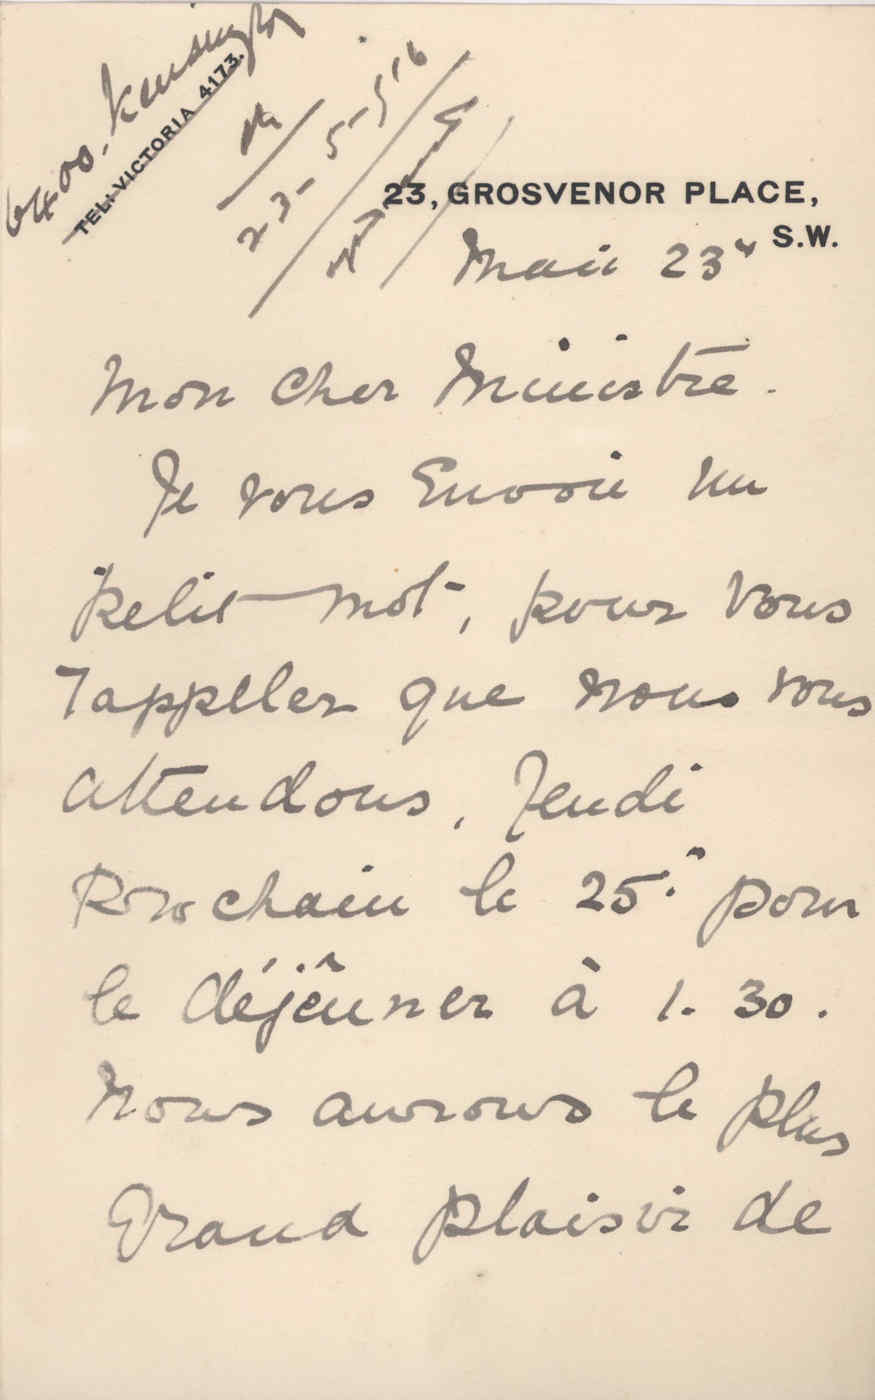 6400. Kensington
TEL: VICTORIA 4173.
23-5-5'16
23, GROSVENOR PLACE,
S.W.
Maii 23
Mon Cher Ministre.
Je vous Envoie un
petit mot, pour vous
rappeller que nous vous
attendons, Jeudi
Prochain le 25. pour
le déjêuner à 1.30.
Nous aurons le plus
Grand plaisir de